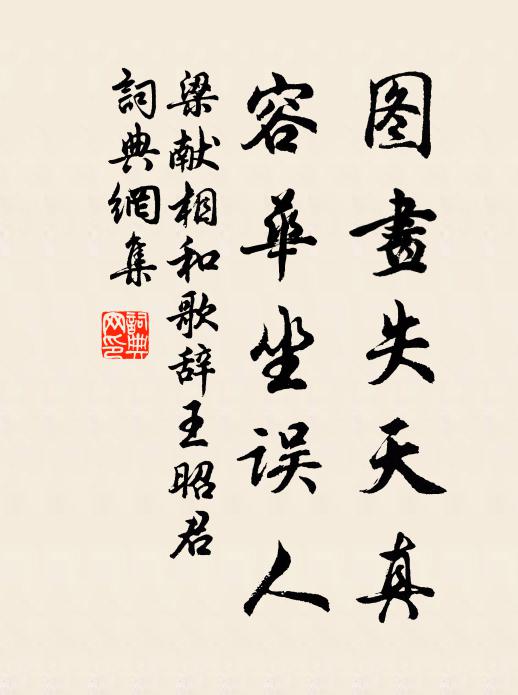 图畫失天真
容華坐误人
梁献相和歌辞王昭君
詞典網集
詞典网印